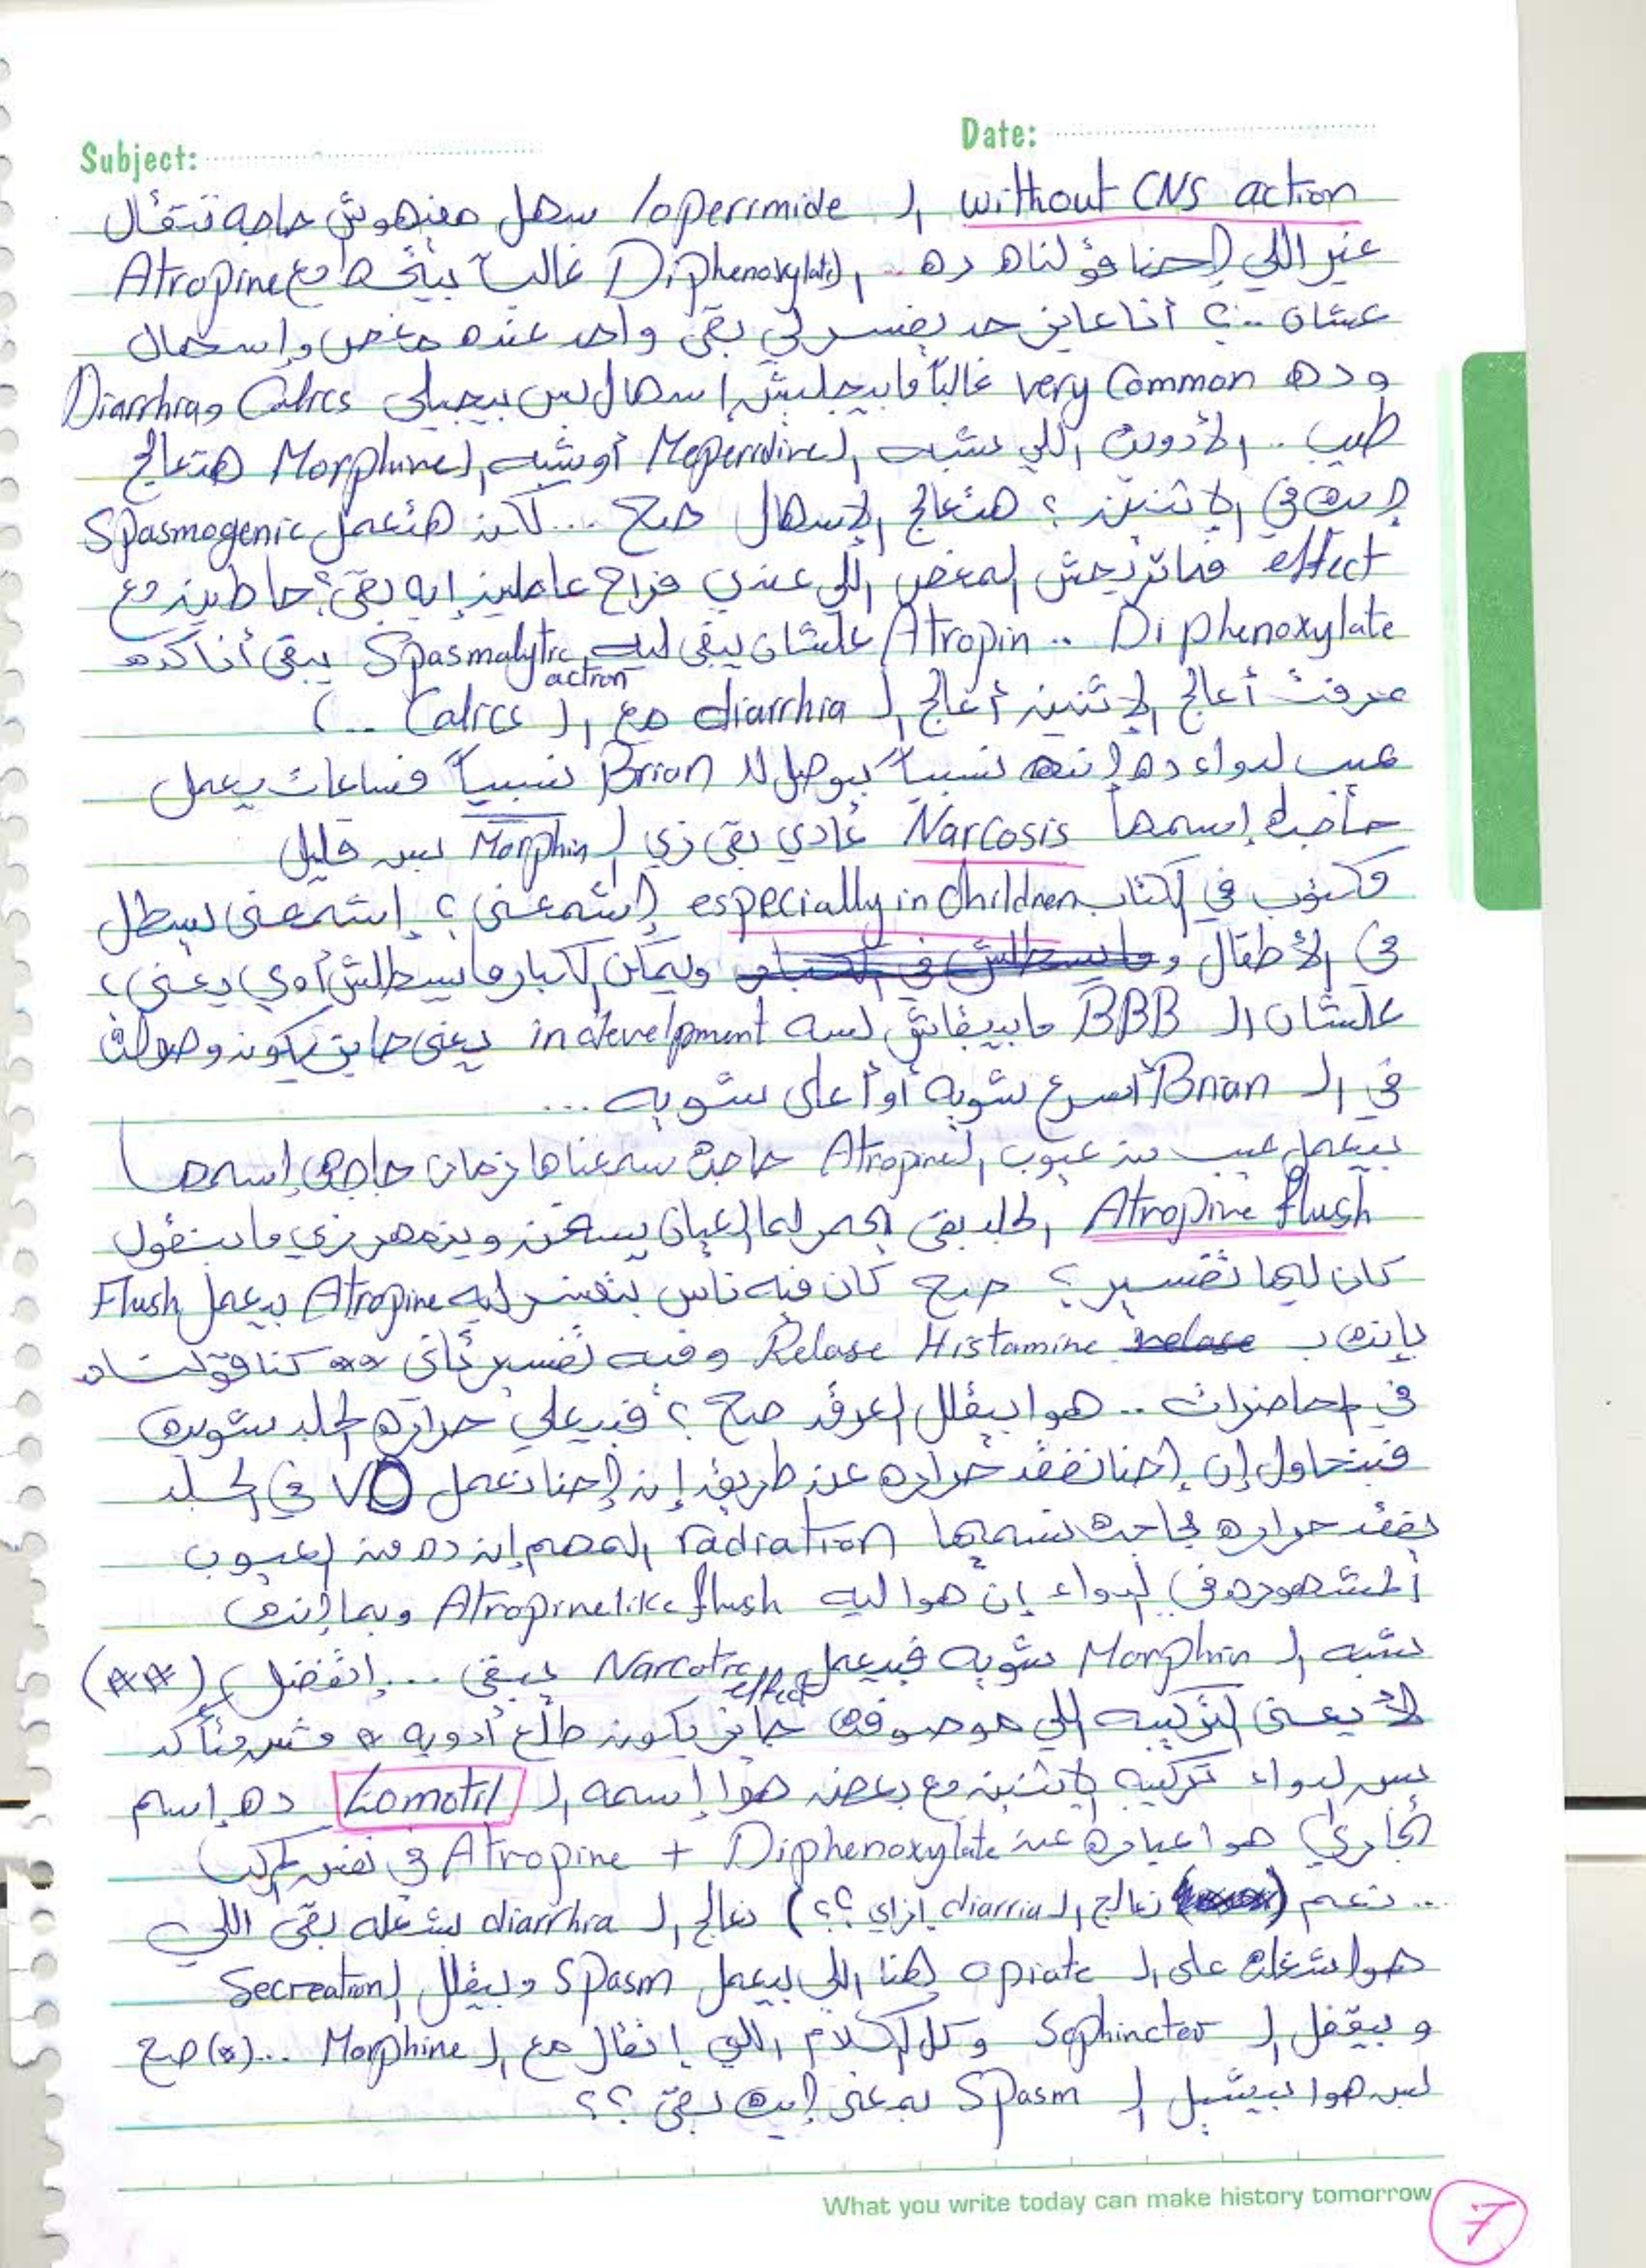 Subject:
Date:
without CNS action الـ loperimide سهل مفيهوش حاجه تتقال
غير اللي إحنا قولناه ده .. الـ Diphenoxylate غالباً بيتحط مع Atropine
عشان ..؟ أنا عايز حد يفسر لي بقى واحد عنده مغص وإسهال
وده very Common غالباً مابيجليش إسهال بس بيجيلي Calics و Diarrhra
طيب .. الأدوية اللي شبه الـ Meperidine أو شبه الـ Morphine هتعالج
إيه في الإتنين ؟ هتعالج الإسهال صح ... لكن هتعمل Spasmogenic
effect فماتريحش المغص اللي عندي فراح عاملين إيه بقى؟ حاطين مع
Diphenoxylate .. Atropin علشان يبقى ليه Spasmalytic action يبقى أنا كده
عرفت أعالج الإتنين أعالج الـ diarrhia مع الـ Calics ..)
عيب الدواء ده إنه نسبياً بيوصل للـ Brian نسبياً فساعات يعمل
حاجة إسمها Narcosis عادي بقى زي الـ Morphin بس قليل
مكتوب في الكتاب especially in children إشمعنى ؟ إشمعنى بيسطل
في الأطفال و ويمكن الكبار مابيسطلش أوي يعني ؟
علشان الـ BBB مابيبقاش لسه in develpment يعني جايز يكون وصوله
في الـ Brian أسرع شويه أو أعلى شويه ...
بيعمل عيب من عيوب الـ Atropine حاجة سمعناها زمان حاجه إسمها
Atropine flush الجلد بقى يحمر لما العيان يسخن ويزمهر زي ما بنقول
كان ليها تفسير ؟ صح كان فيه ناس بتفسر ليه Atropine بيعمل Flush
بإنه بـ Relase Histamine وفيه تفسير تاني كنا قولناه
في المحاضرات .. هوا بيقلل العرق صح ؟ فبيعلي حرارة الجلد شوية
فبنحاول إن إحنا نفقد حراره عن طريق إن إحنا نعمل VD في الجلد
نفقد حراره بحاجة نسميها radiation المهم إن ده من العيوب
المشهوره في الدواء إن هوا ليه Atropine like flush وبما إنه
شبه الـ Morphin شويه فبيعمل Narcotic effect يبقى ... إتفضل (**)
لأ يعني التركيبه اللي موصوفة جايز يكون طلع أدويه * مش متأكد
بس الدواء تركيبه الإتنين مع بعض هوا إسمه الـ Lomotil ده إسم
تجاري هوا عبارة عن Atropine + Diphenoxylate في نفس المركب
.. نعم ( نعالج الـ diarria إزاي ؟؟) نعالج الـ diarrhra بشغله بقى اللي
هوا شغله على الـ opiate هنا اللي بيعمل Spasm وبيقلل الـ Secreation
وبيقفل الـ Sophincter وكل الكلام اللي إتقال مع الـ Morphine ... (*) صح
بس هوا بيشيل الـ Spasm بمعنى إيه بقى ؟؟
What you write today can make history tomorrow
7